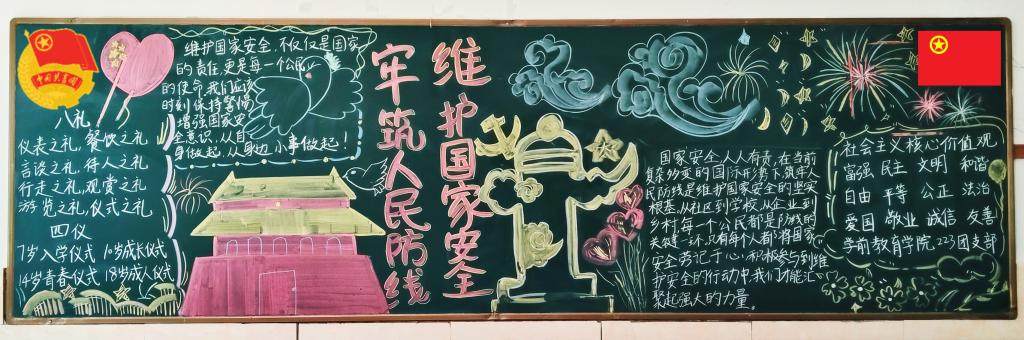 中国共青团
八礼
仪表之礼，餐饮之礼
言谈之礼，待人之礼
行走之礼，观赏之礼
游览之礼，仪式之礼
四仪
7岁入学仪式 10岁成长仪式
14岁青春仪式 18岁成人仪式
维护国家安全，不仅仅是国家
的责任，更是每一个公民
的使命，我们应该
时刻保持警惕，
增强国家安
全意识，从自
身做起，从身边小事做起！
维护国家安全
牢筑人民防线
国家安全，人人有责，在当前
复杂多变的国际形势下，筑牢人
民防线是维护国家安全的坚实
根基，从社区到学校，从企业到
乡村，每一个公民都是防线的
关键一环，只有每个人都将国家
安全劳记于心，积极参与到维
护安全的行动中，我们才能汇
聚起强大的力量。
社会主义核心价值观
富强 民主 文明 和谐
自由 平等 公正 法治
爱国 敬业 诚信 友善
学前教育学院 223团支部